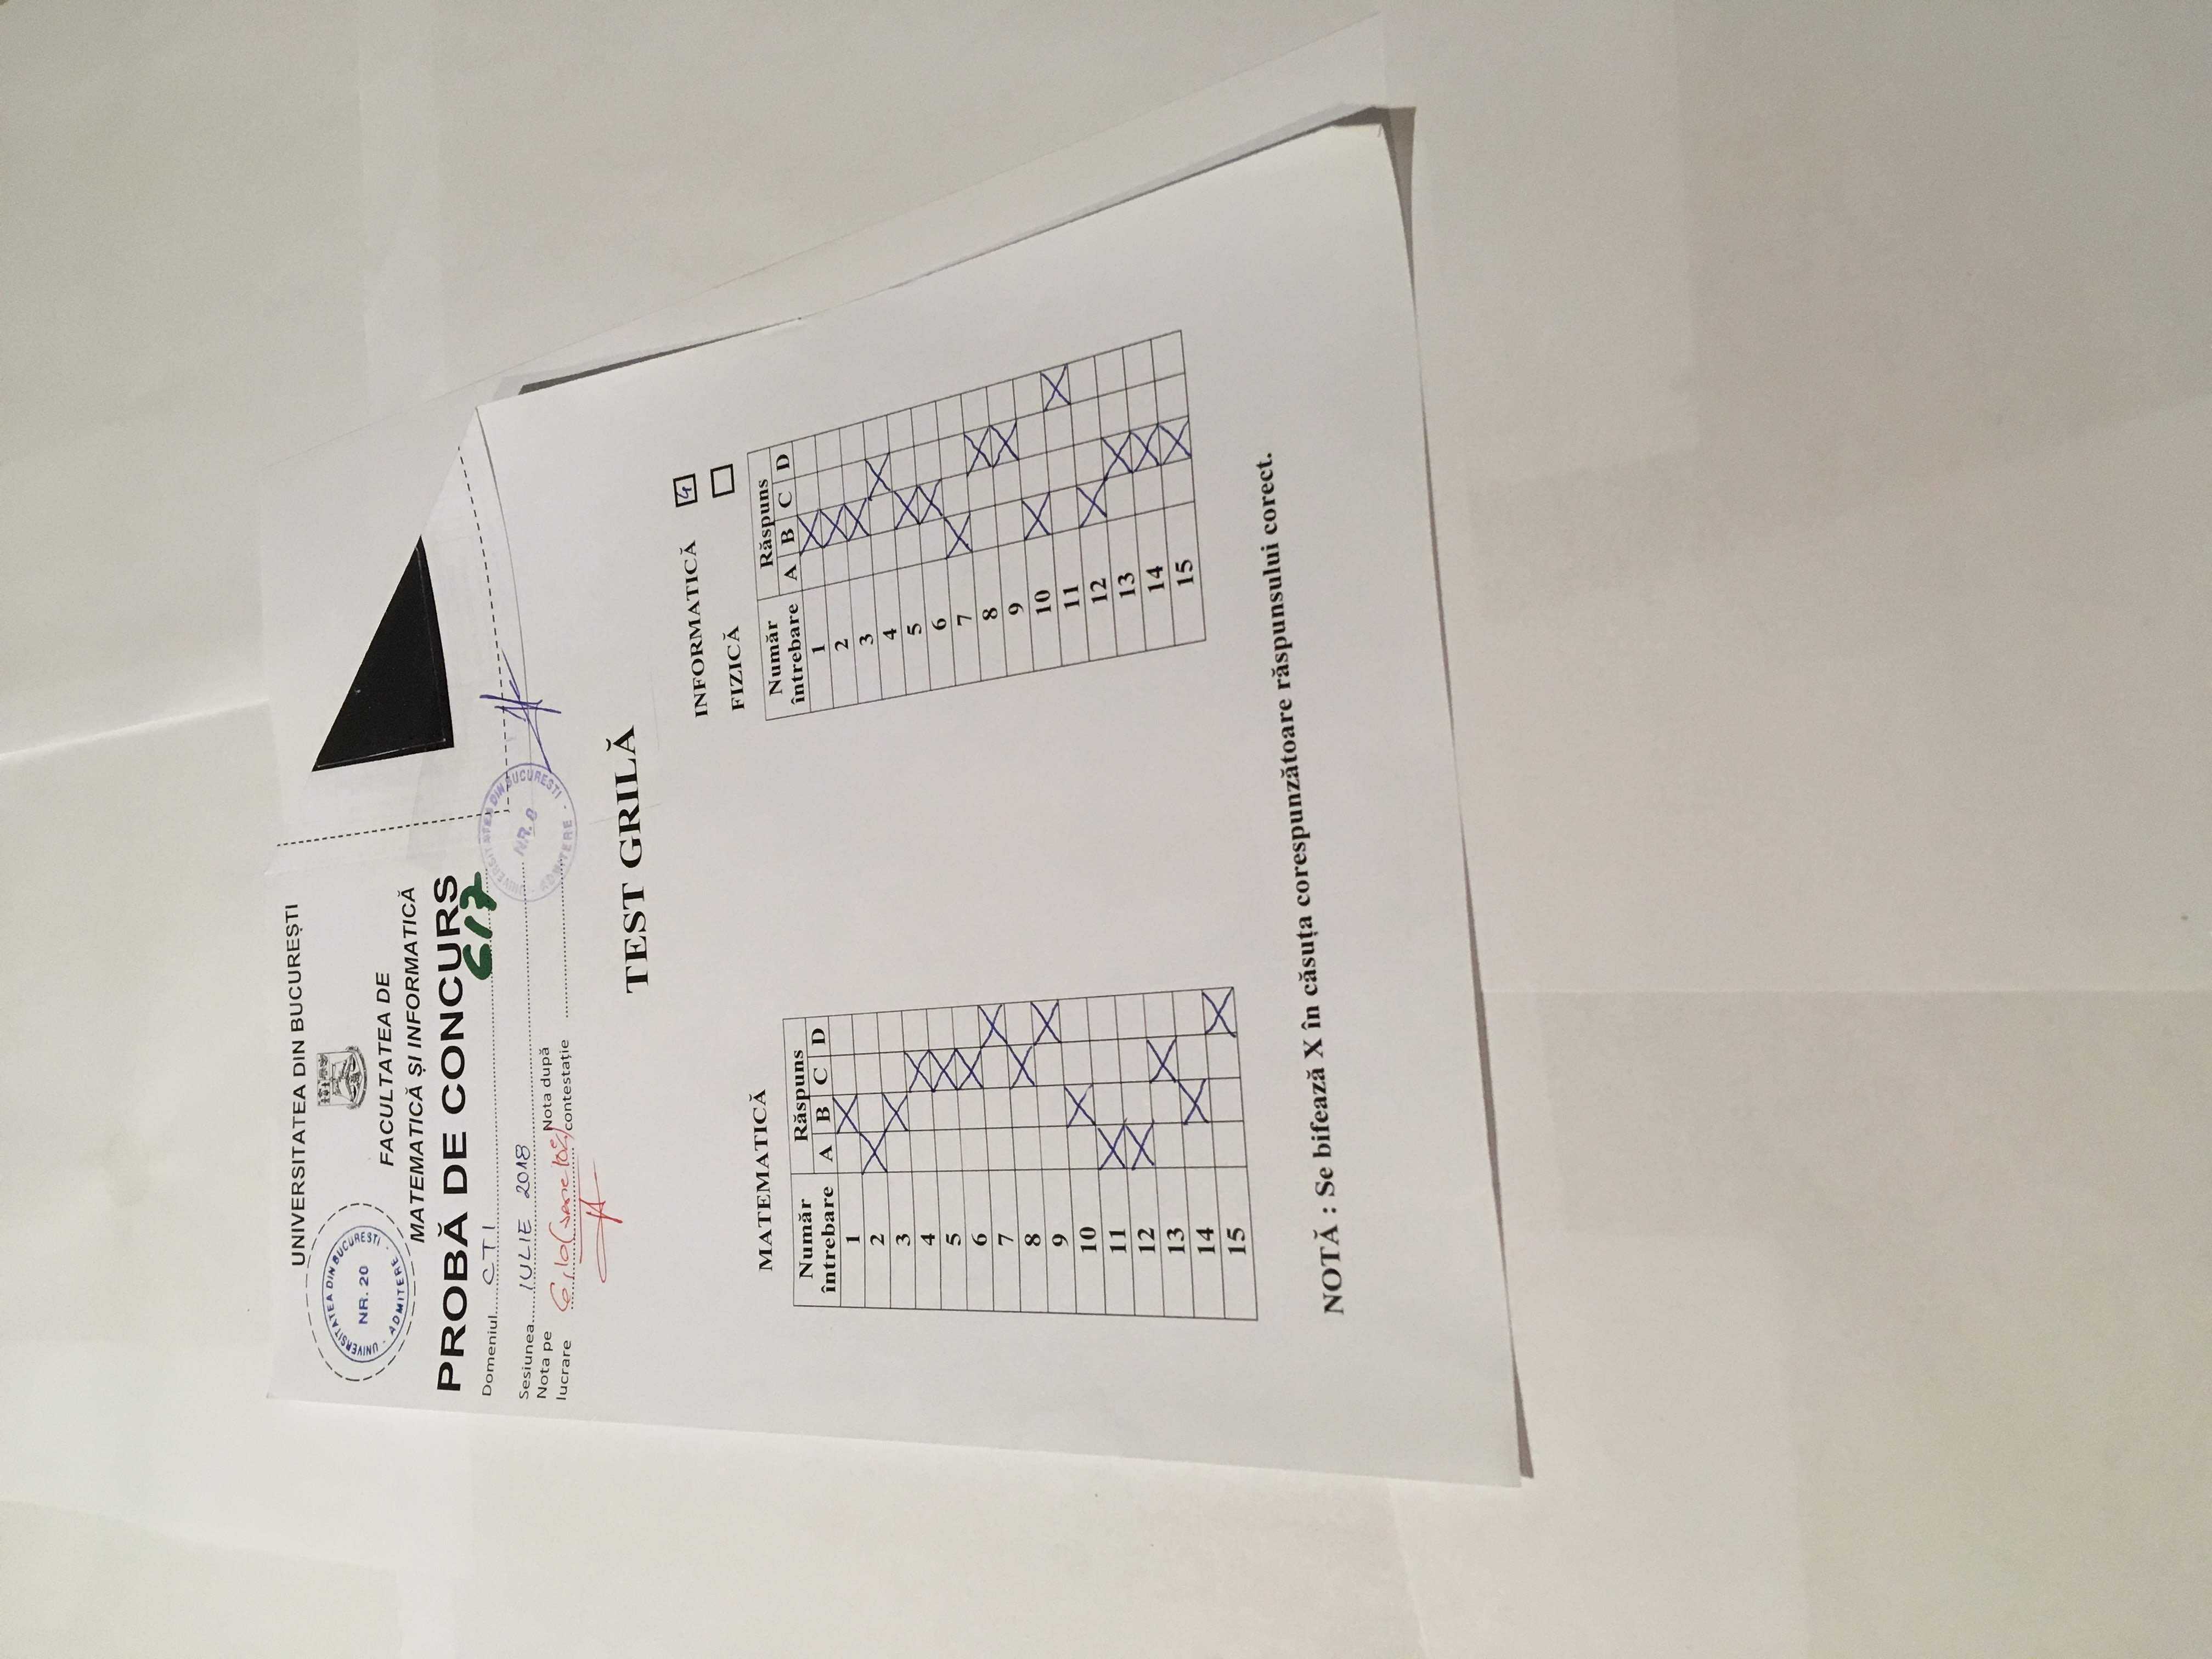 UNIVERSITATEA DIN BUCUREȘTI
UNIVERSITATEA DIN BUCUREȘTI
NR. 20
ADMITERE
FACULTATEA DE
MATEMATICĂ ȘI INFORMATICĂ
PROBĂ DE CONCURS
617
Domeniul CTI
Sesiunea IULIE 2018
Nota pe lucrare 6,10 Nota după contestație
UNIVERSITATEA DIN BUCUREȘTI
NR. 8
ADMITERE
TEST GRILĂ
INFORMATICĂ 4
FIZICĂ
MATEMATICĂ
Număr întrebare Răspuns
A B C D
1 X
2 X
3 X
4 X
5 X
6 X
7 X
8 X
9 X
10 X
11 X
12 X
13 X
14 X
15 X
Număr întrebare Răspuns
A B C D
1 X
2 X
3 X
4 X
5 X
6 X
7 X
8 X
9 X
10 X
11 X
12 X
13 X
14 X
15 X
NOTĂ : Se bifează X în căsuța corespunzătoare răspunsului corect.